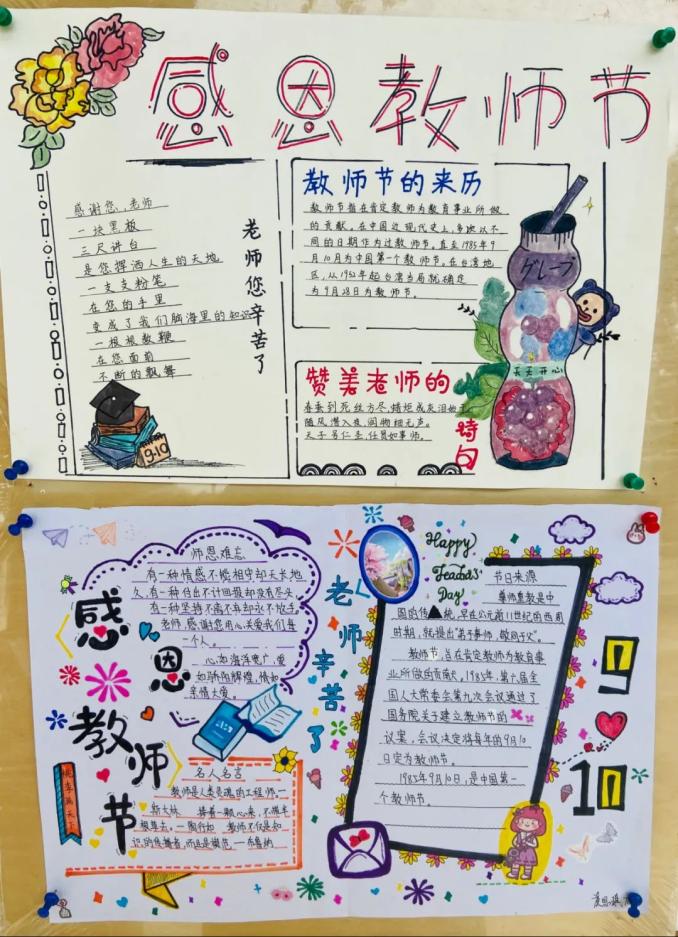 感恩教师节
感谢您,老师
一块黑板
三尺讲台
是您挥洒人生的天地
一支支粉笔
在您的手里
变成了我们脑海里的知识
一根根教鞭
在您面前
不断的飘舞
老师您辛苦了
9·10
教师节的来历
教师节旨在肯定教师为教育事业所做
的贡献,在中国近现代史上,多次以不
同的日期作为过教师节,直至1985年9
月10日为中国第一个教师节,在台湾地
区,从1952年起台湾当局就确定
为9月28日为教师节。
グレープ
天天开心
赞美老师的
诗句
春蚕到死丝方尽,蜡炬成灰泪始干。
随风潜入夜,润物细无声。
感恩
教师节
师恩难忘
有一种情感不能相守却天长地
久,有一种付出不计回报却没有尽头,
有一种坚持不离不弃却永不放手
老师,感谢您用心关爱我们每
一个人。
心如海洋宽广,爱
亲情大爱。
老师辛苦了
名人名言
教师是人类灵魂的工程师一
斯大林 捧着一颗心来,不带半
根草去。一陶行知 教师不仅是知
识的传播者,而且是模范。一布鲁纳
桃李满天下
Happy
Teachers'
Day!
节日来源
尊师重教是中
国的传统,早在公元前11世纪的西周
时期,就提出"弟子事师,敬同于父"。
教师节,旨在肯定教师为教育事
业所做的贡献。1985年,第六届全
国人大常委会第九次会议通过了
国务院关于建立教师节的
议案,会议决定将每年的9月10
日定为教师节。
1985年9月10日,是中国第一
个教师节。
9
10